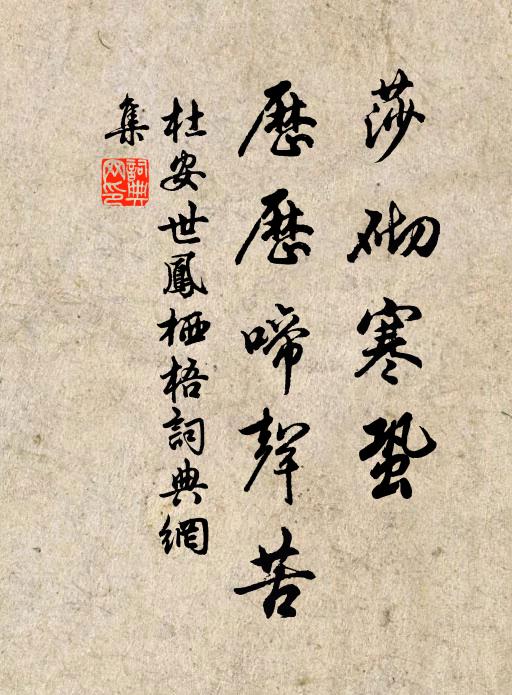 莎砌寒蛩
歷歷啼聲苦
杜安世鳳栖梧詞典網
集
詞典網印